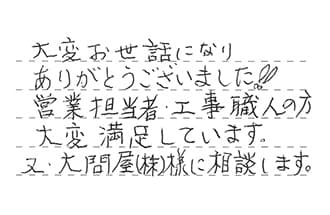 大変お世話になり
ありがとうございました!!
営業担当者・工事職人の方
大変満足しています。
又・大問屋(株)様に相談します。